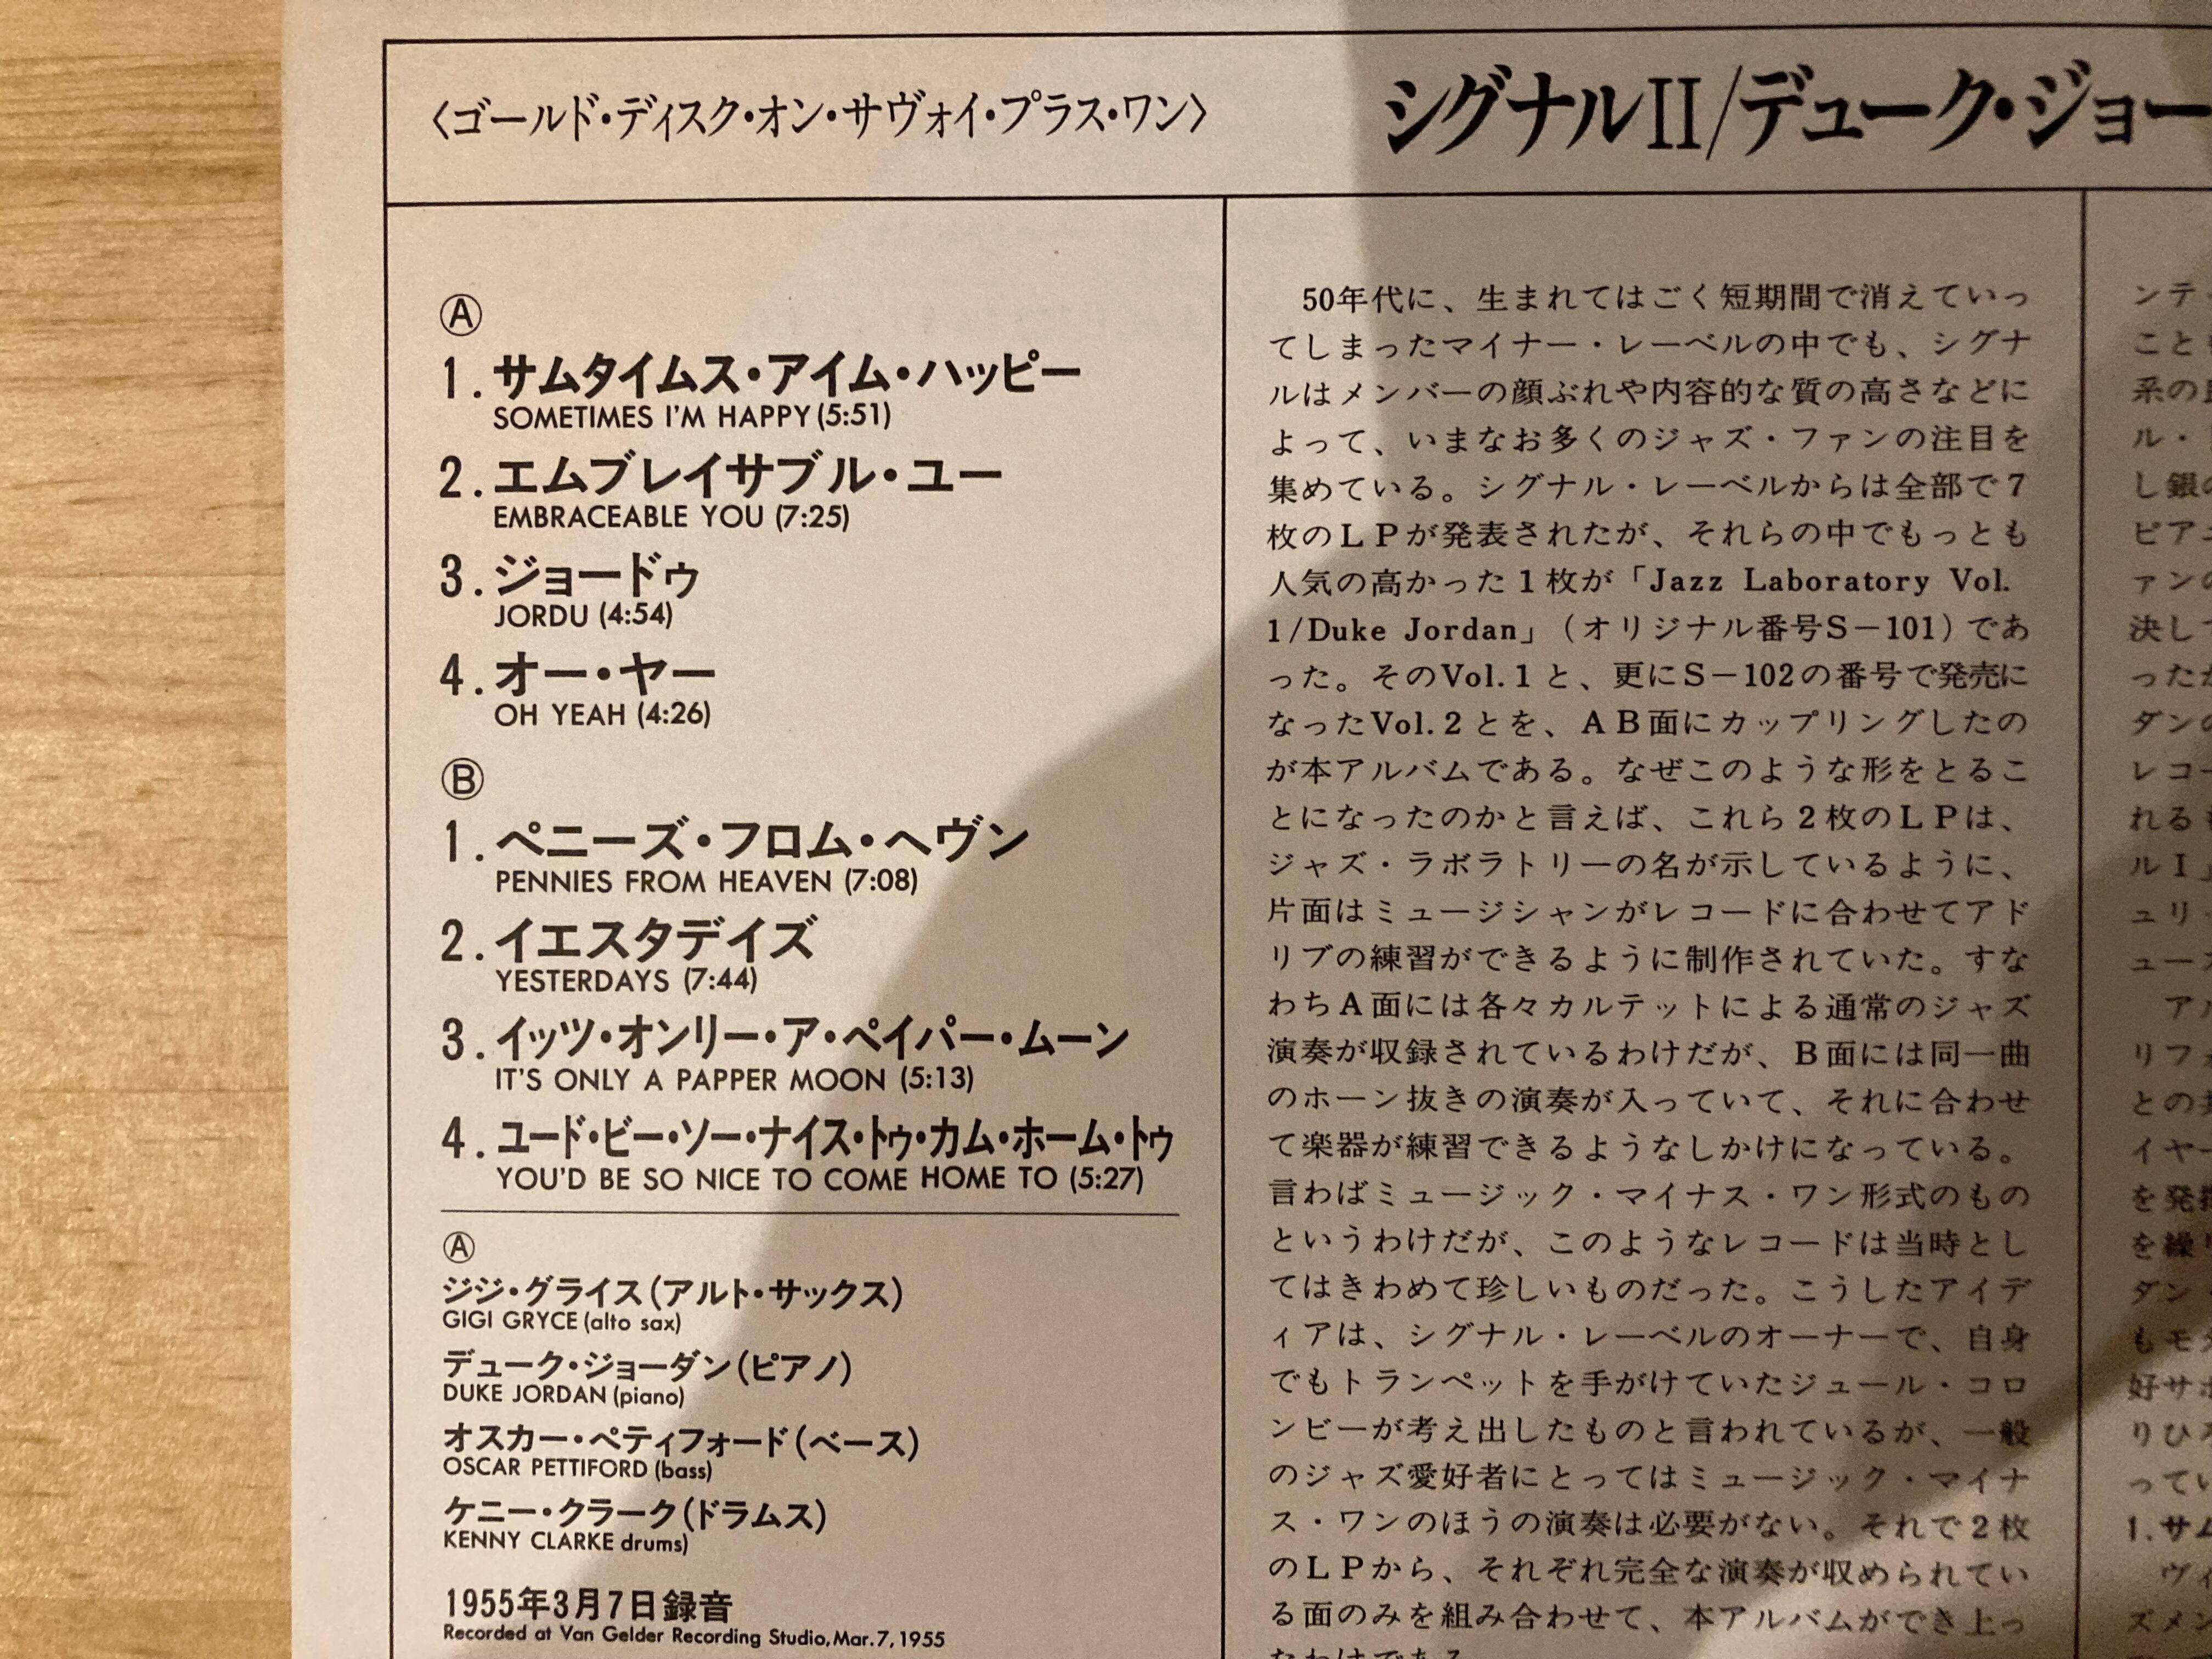 〈ゴールド・ディスク・オン・サヴォイ・プラス・ワン〉
シグナルII/デューク・ジョー
Ⓐ
1.サムタイムス・アイム・ハッピー
SOMETIMES I'M HAPPY (5:51)
2.エムブレイサブル・ユー
EMBRACEABLE YOU (7:25)
3.ジョードゥ
JORDU (4:54)
4.オー・ヤー
OH YEAH (4:26)
Ⓑ
1.ペニーズ・フロム・ヘヴン
PENNIES FROM HEAVEN (7:08)
2.イエスタデイズ
YESTERDAYS (7:44)
3.イッツ・オンリー・ア・ペイパー・ムーン
IT'S ONLY A PAPPER MOON (5:13)
4.ユード・ビー・ソー・ナイス・トゥ・カム・ホーム・トゥ
YOU'D BE SO NICE TO COME HOME TO (5:27)
Ⓐ
ジジ・グライス(アルト・サックス)
GIGI GRYCE (alto sax)
デューク・ジョーダン(ピアノ)
DUKE JORDAN (piano)
オスカー・ペティフォード(ベース)
OSCAR PETTIFORD (bass)
ケニー・クラーク(ドラムス)
KENNY CLARKE drums)
1955年3月7日録音
Recorded at Van Gelder Recording Studio, Mar. 7, 1955
50年代に、生まれてはごく短期間で消えていっ
てしまったマイナー・レーベルの中でも、シグナ
ルはメンバーの顔ぶれや内容的な質の高さなどに
よって、いまなお多くのジャズ・ファンの注目を
集めている。シグナル・レーベルからは全部で7
枚のLPが発表されたが、それらの中でもっとも
人気の高かった1枚が「Jazz Laboratory Vol.
1/Duke Jordan」(オリジナル番号S－101)であ
った。そのVol.1と、更にS－102の番号で発売に
なったVol.2とを、AB面にカップリングしたの
が本アルバムである。なぜこのような形をとるこ
とになったのかと言えば、これら2枚のLPは、
ジャズ・ラボラトリーの名が示しているように、
片面はミュージシャンがレコードに合わせてアド
リブの練習ができるように制作されていた。すな
わちA面には各々カルテットによる通常のジャズ
演奏が収録されているわけだが、B面には同一曲
のホーン抜きの演奏が入っていて、それに合わせ
て楽器が練習できるようなしかけになっている。
言わばミュージック・マイナス・ワン形式のもの
というわけだが、このようなレコードは当時とし
てはきわめて珍しいものだった。こうしたアイデ
ィアは、シグナル・レーベルのオーナーで、自身
でもトランペットを手がけていたジュール・コロ
ンビーが考え出したものと言われているが、一般
のジャズ愛好者にとってはミュージック・マイナ
ス・ワンのほうの演奏は必要がない。それで2枚
のLPから、それぞれ完全な演奏が収められてい
る面のみを組み合わせて、本アルバムができ上っ
たわけである
ンテ
こと
系の
ル・
し銀の
ピアニ
ァンの
決して
ったか
ダンの
レコー
れるも
ルI」
ュリ
ュース
ア
リフォ
との
イヤー
を発
を繰り
ダン
もモ
好サ
りひ
ってい
1.サム
ヴィ
ズメン